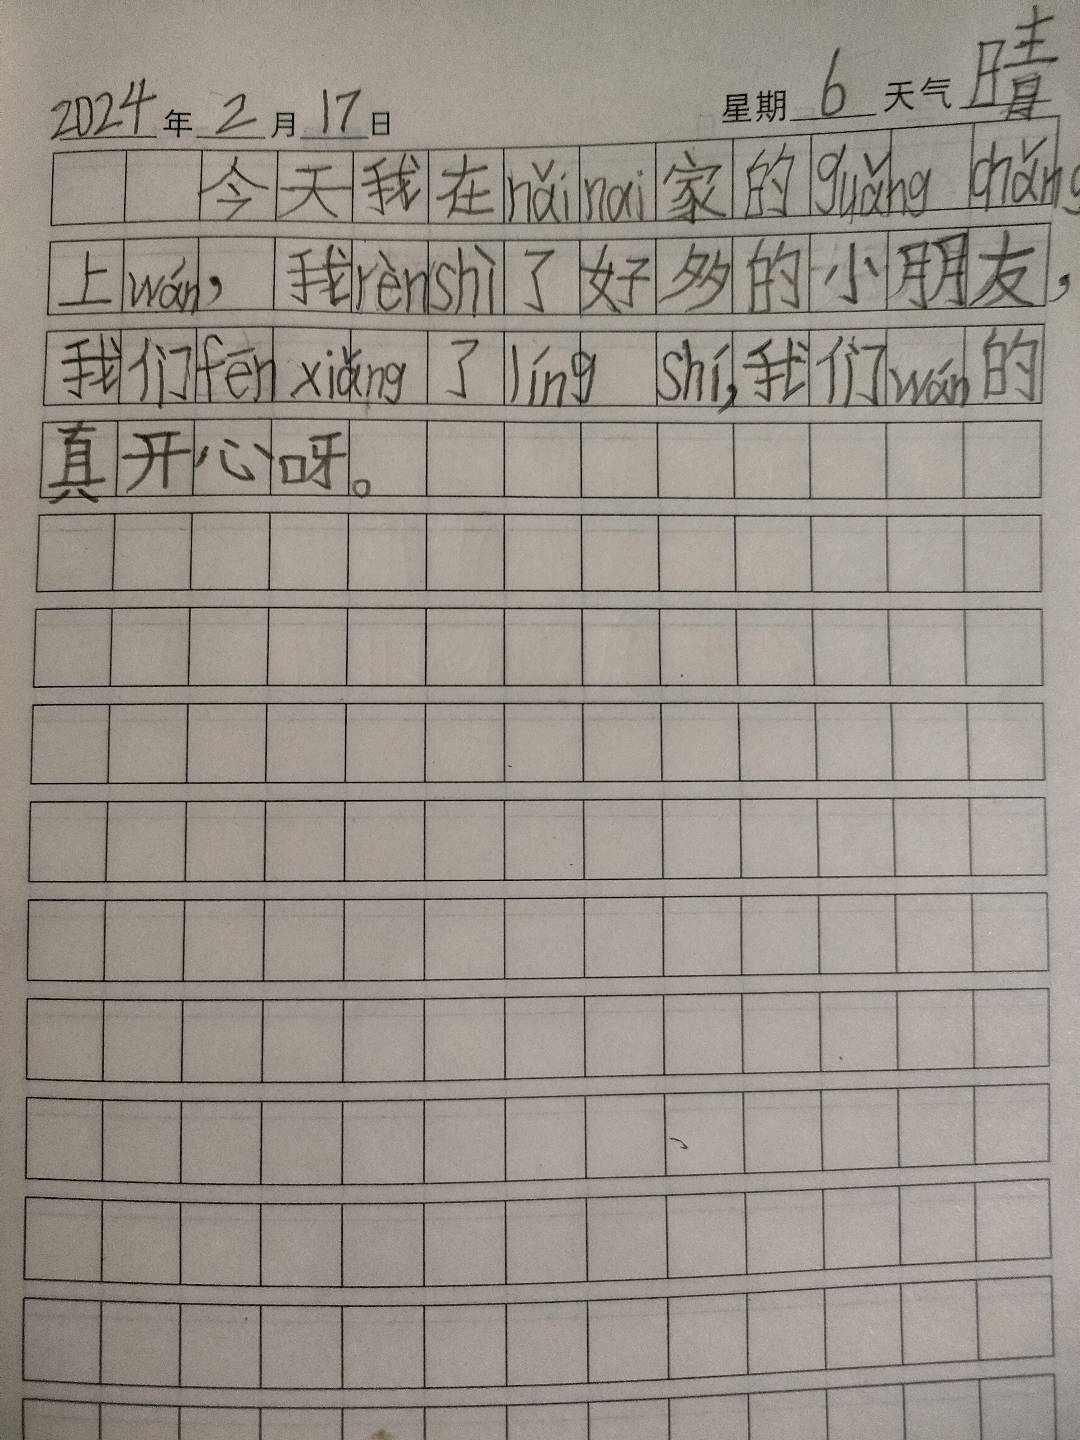 2024年2月17日 星期6 天气晴
今天我在nǎinai家的guǎng chǎng
上wán，我rènshì了好多的小朋友，
我们fēn xiǎng了líng shí，我们wán的
真开心呀。